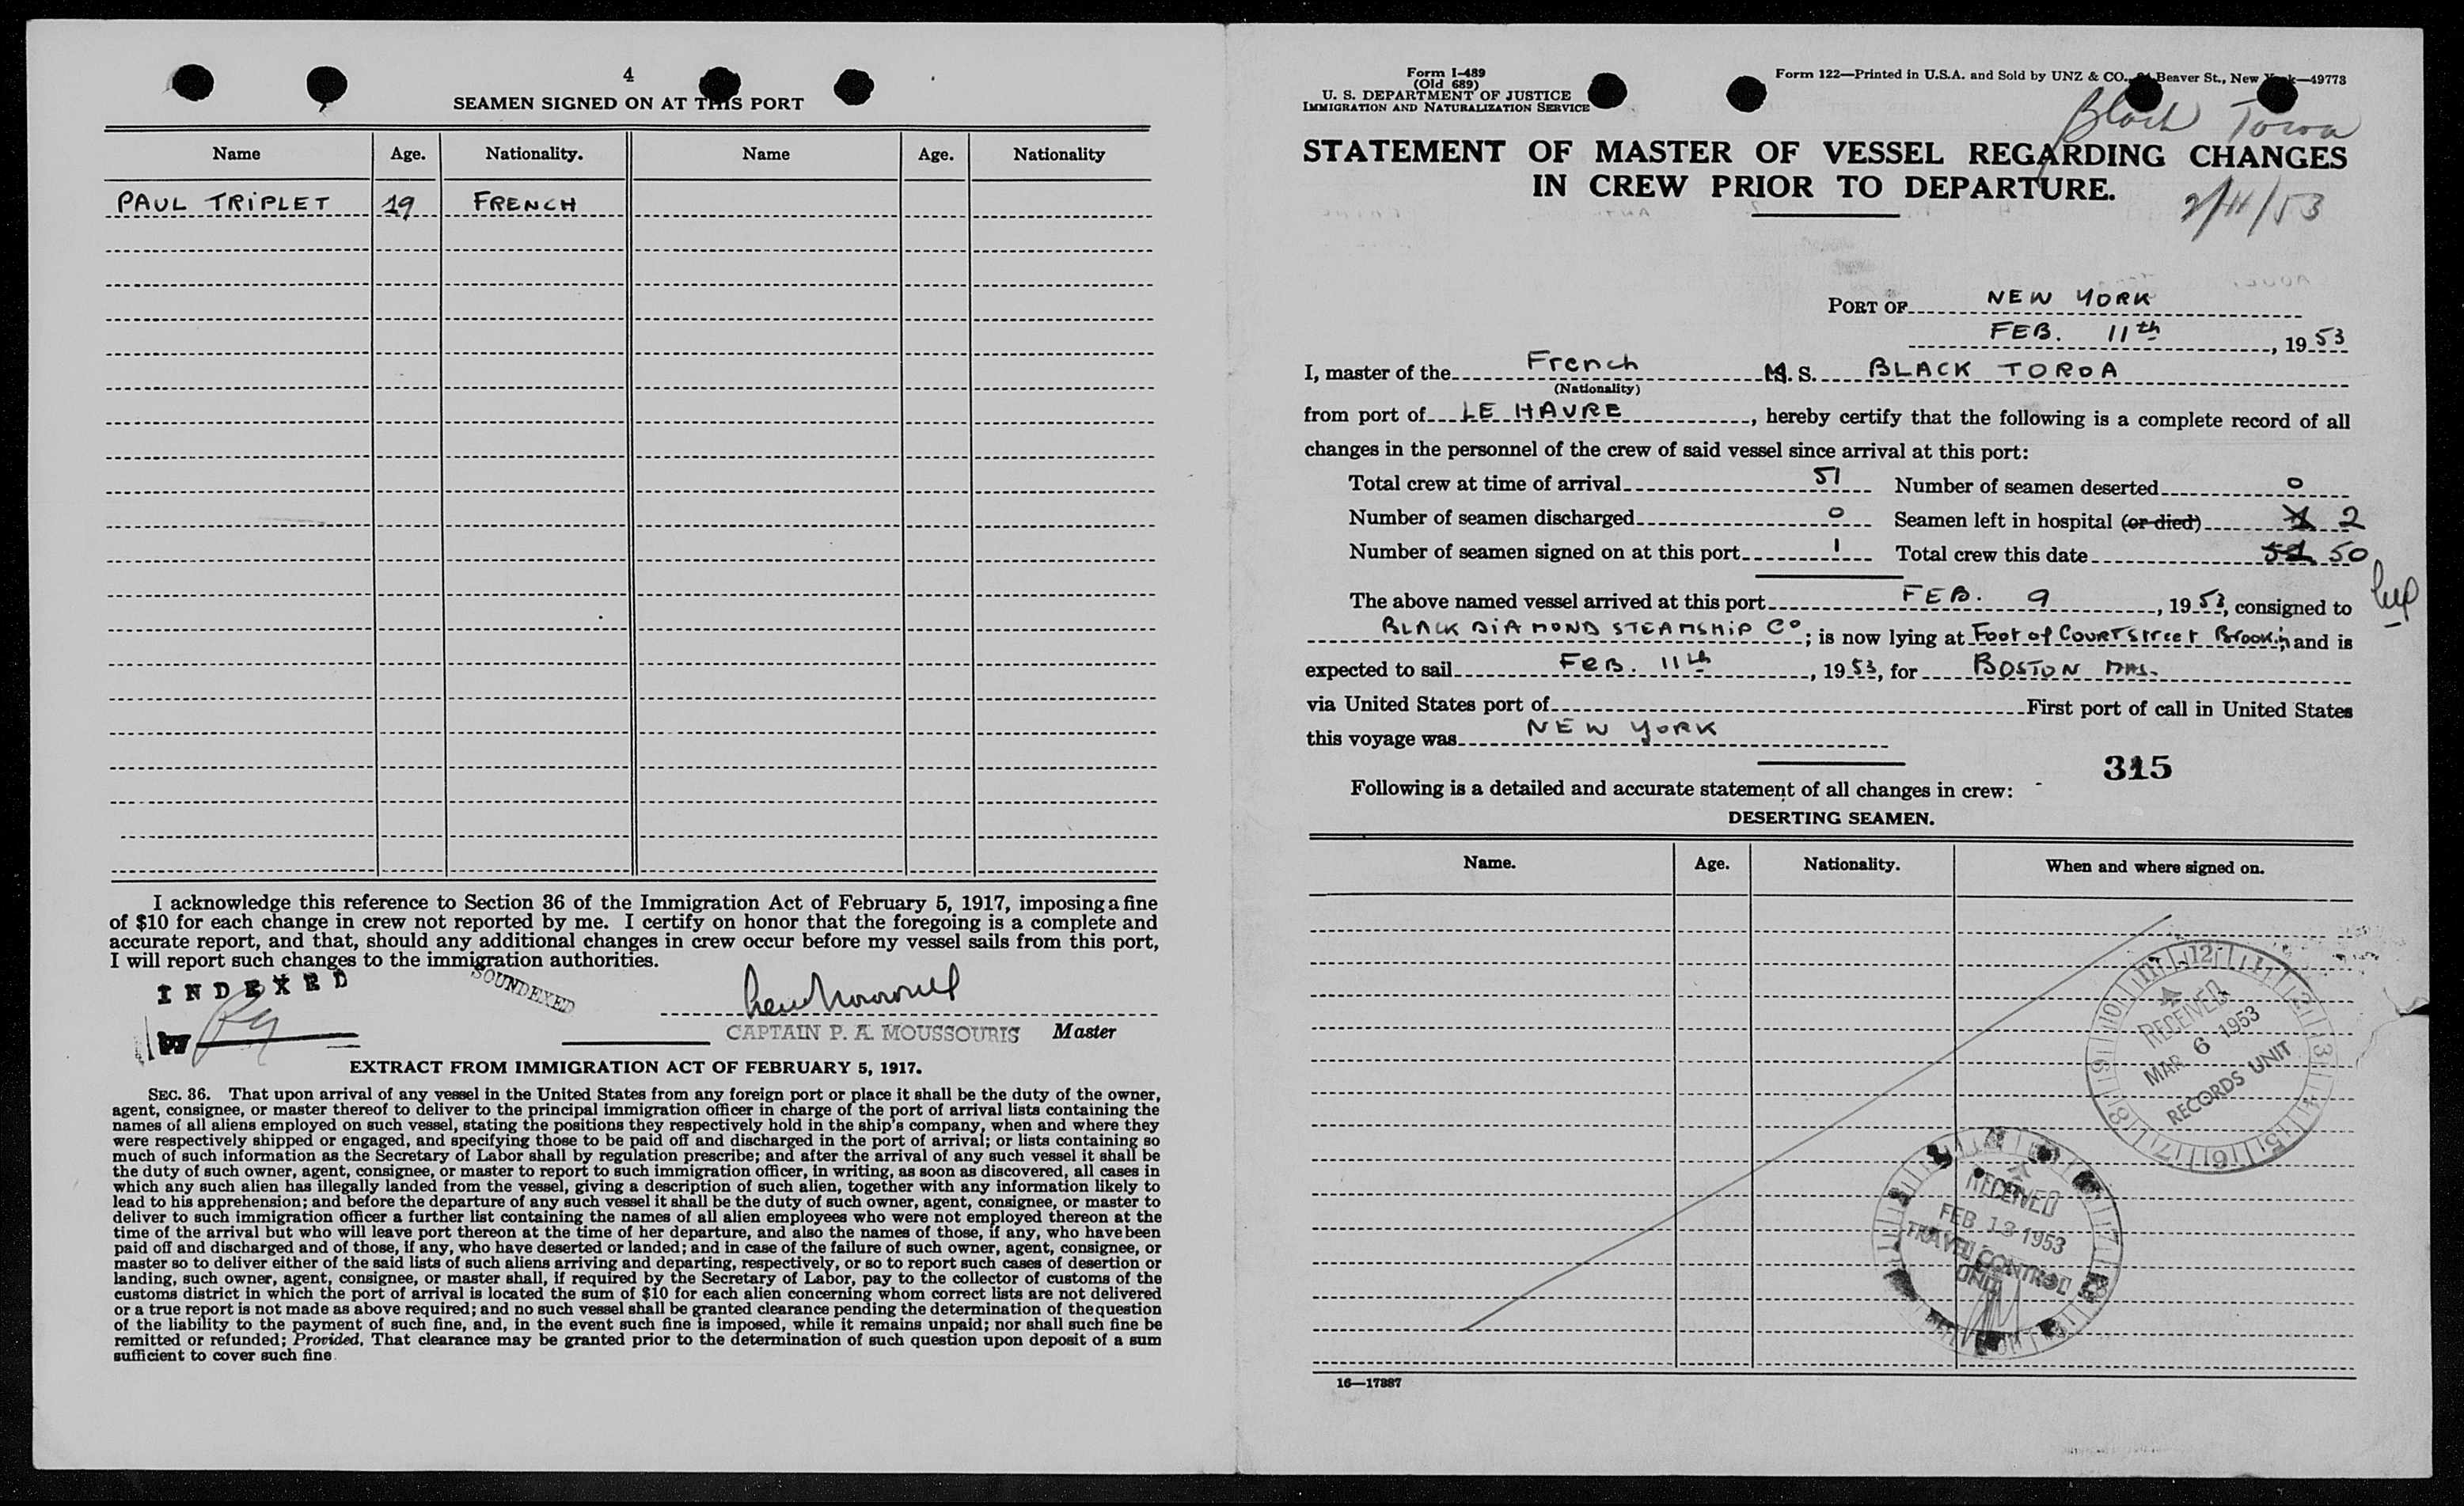 4
SEAMEN SIGNED ON AT THIS PORT
Name Age. Nationality. Name Age. Nationality
PAUL TRIPLET 19 FRENCH
I acknowledge this reference to Section 36 of the Immigration Act of February 5, 1917, imposing a fine
of $10 for each change in crew not reported by me. I certify on honor that the foregoing is a complete and
accurate report, and that, should any additional changes in crew occur before my vessel sails from this port,
I will report such changes to the immigration authorities.
INDEXED
SOUNDEXED
CAPTAIN P. A. MOUSSOURIS Master
EXTRACT FROM IMMIGRATION ACT OF FEBRUARY 5, 1917.
SEC. 36. That upon arrival of any vessel in the United States from any foreign port or place it shall be the duty of the owner,
agent, consignee, or master thereof to deliver to the principal immigration officer in charge of the port of arrival lists containing the
names of all aliens employed on such vessel, stating the positions they respectively hold in the ship's company, when and where they
were respectively shipped or engaged, and specifying those to be paid off and discharged in the port of arrival; or lists containing so
much of such information as the Secretary of Labor shall by regulation prescribe; and after the arrival of any such vessel it shall be
the duty of such owner, agent, consignee, or master to report to such immigration officer, in writing, as soon as discovered, all cases in
which any such alien has illegally landed from the vessel, giving a description of such alien, together with any information likely to
lead to his apprehension; and before the departure of any such vessel it shall be the duty of such owner, agent, consignee, or master to
deliver to such immigration officer a further list containing the names of all alien employees who were not employed thereon at the
time of the arrival but who will leave port thereon at the time of her departure, and also the names of those, if any, who have been
paid off and discharged and of those, if any, who have deserted or landed; and in case of the failure of such owner, agent, consignee, or
master so to deliver either of the said lists of such aliens arriving and departing, respectively, or so to report such cases of desertion or
landing, such owner, agent, consignee, or master shall, if required by the Secretary of Labor, pay to the collector of customs of the
customs district in which the port of arrival is located the sum of $10 for each alien concerning whom correct lists are not delivered
or a true report is not made as above required; and no such vessel shall be granted clearance pending the determination of the question
of the liability to the payment of such fine, and, in the event such fine is imposed, while it remains unpaid; nor shall such fine be
remitted or refunded; Provided, That clearance may be granted prior to the determination of such question upon deposit of a sum
sufficient to cover such fine.
Form I-489
(Old 689)
U. S. DEPARTMENT OF JUSTICE
IMMIGRATION AND NATURALIZATION SERVICE
Form 122—Printed in U.S.A. and Sold by UNZ & CO., Beaver St., New York—49773
Black
STATEMENT OF MASTER OF VESSEL REGARDING CHANGES
IN CREW PRIOR TO DEPARTURE.
2/11/53
PORT OF NEW YORK
FEB. 11th, 1953
I, master of the French M. S. BLACK TORDA
(Nationality)
from port of LE HAVRE, hereby certify that the following is a complete record of all
changes in the personnel of the crew of said vessel since arrival at this port:
Total crew at time of arrival 51 Number of seamen deserted 0
Number of seamen discharged 0 Seamen left in hospital (or died) 1 2
Number of seamen signed on at this port 1 Total crew this date 51 50
The above named vessel arrived at this port FEB. 9, 1953, consigned to
BLACK DIAMOND STEAMSHIP Co; is now lying at Foot of COURT Street Brook.; and is
expected to sail FEB. 11th, 1953, for BOSTON MAS.
via United States port of First port of call in United States
this voyage was NEW YORK
315
Following is a detailed and accurate statement of all changes in crew:
DESERTING SEAMEN.
Name. Age. Nationality. When and where signed on.
RECEIVED
MAR 6 1953
RECORDS UNIT
RECEIVED
FEB 13 1953
TRAVEL CONTROL
UNIT
16—17387